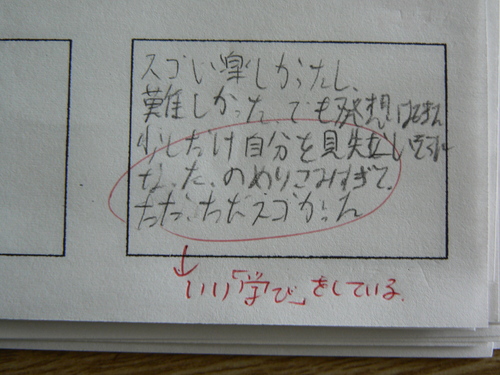 スゴい楽しかったし、
難しかった でも発想は
少しだけ自分を見失いそうに
なった、のめりこみすぎて、
ただ、ただスゴかった
↓
いい「学び」をしている。